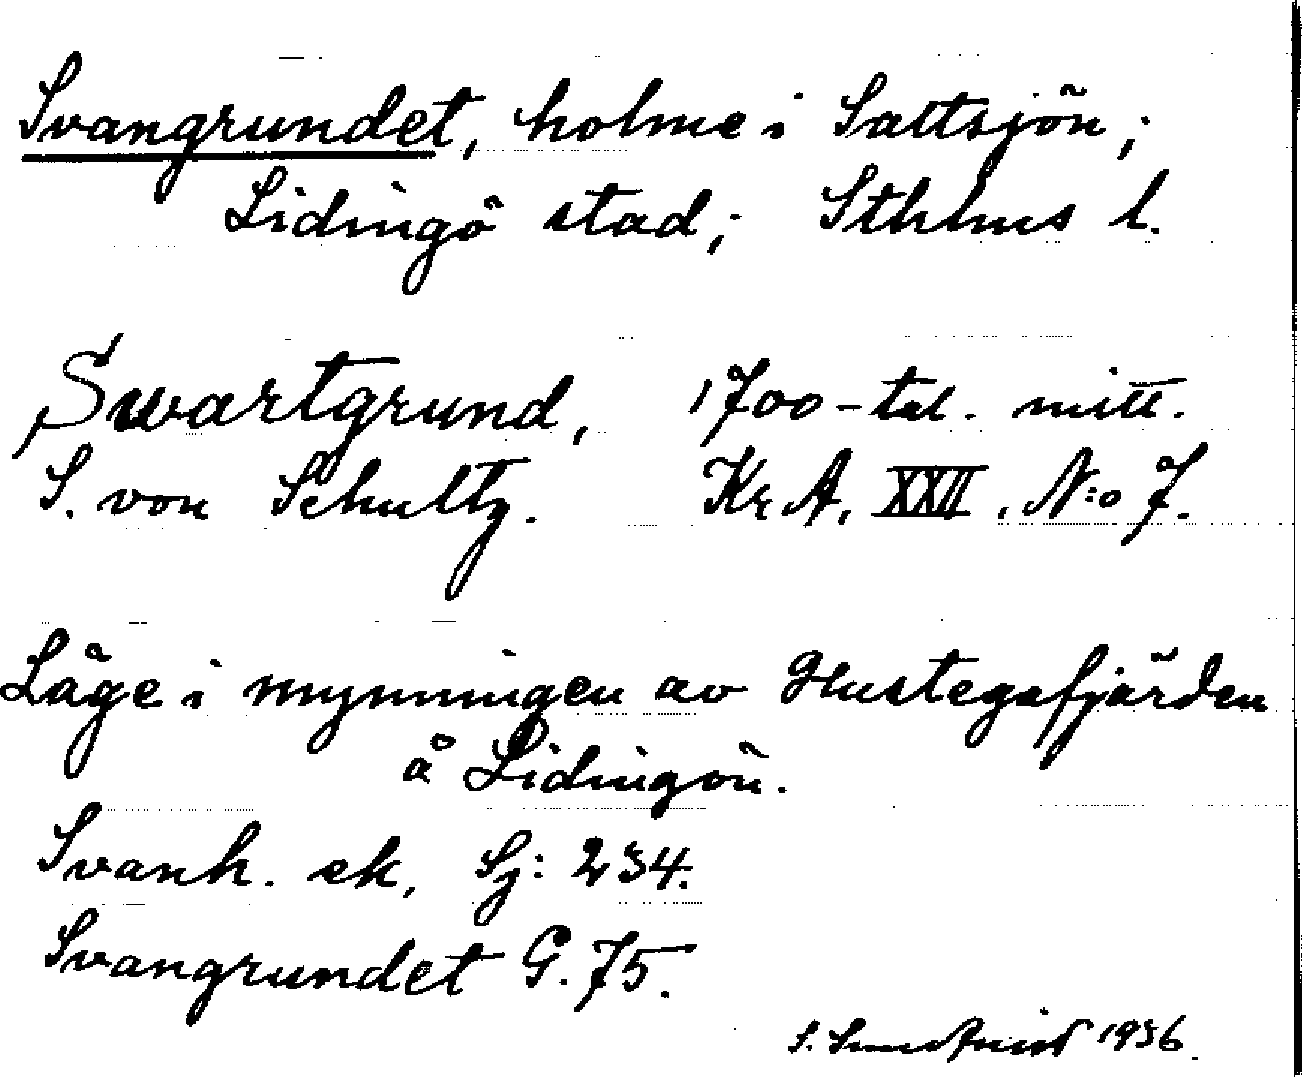 Svangrundet, holme i Saltsjön;
Lidingö stad; Sthlms l.
Swartgrund, 1700-tal. mitt.
S. von Schultz. KrA, XXII, N:o 7.
Läge i mynningen av Hustegafjärden
å Lidingön.
Svanh. ek, Sj: 234.
Svangrundet G. 75.
S. 1936.